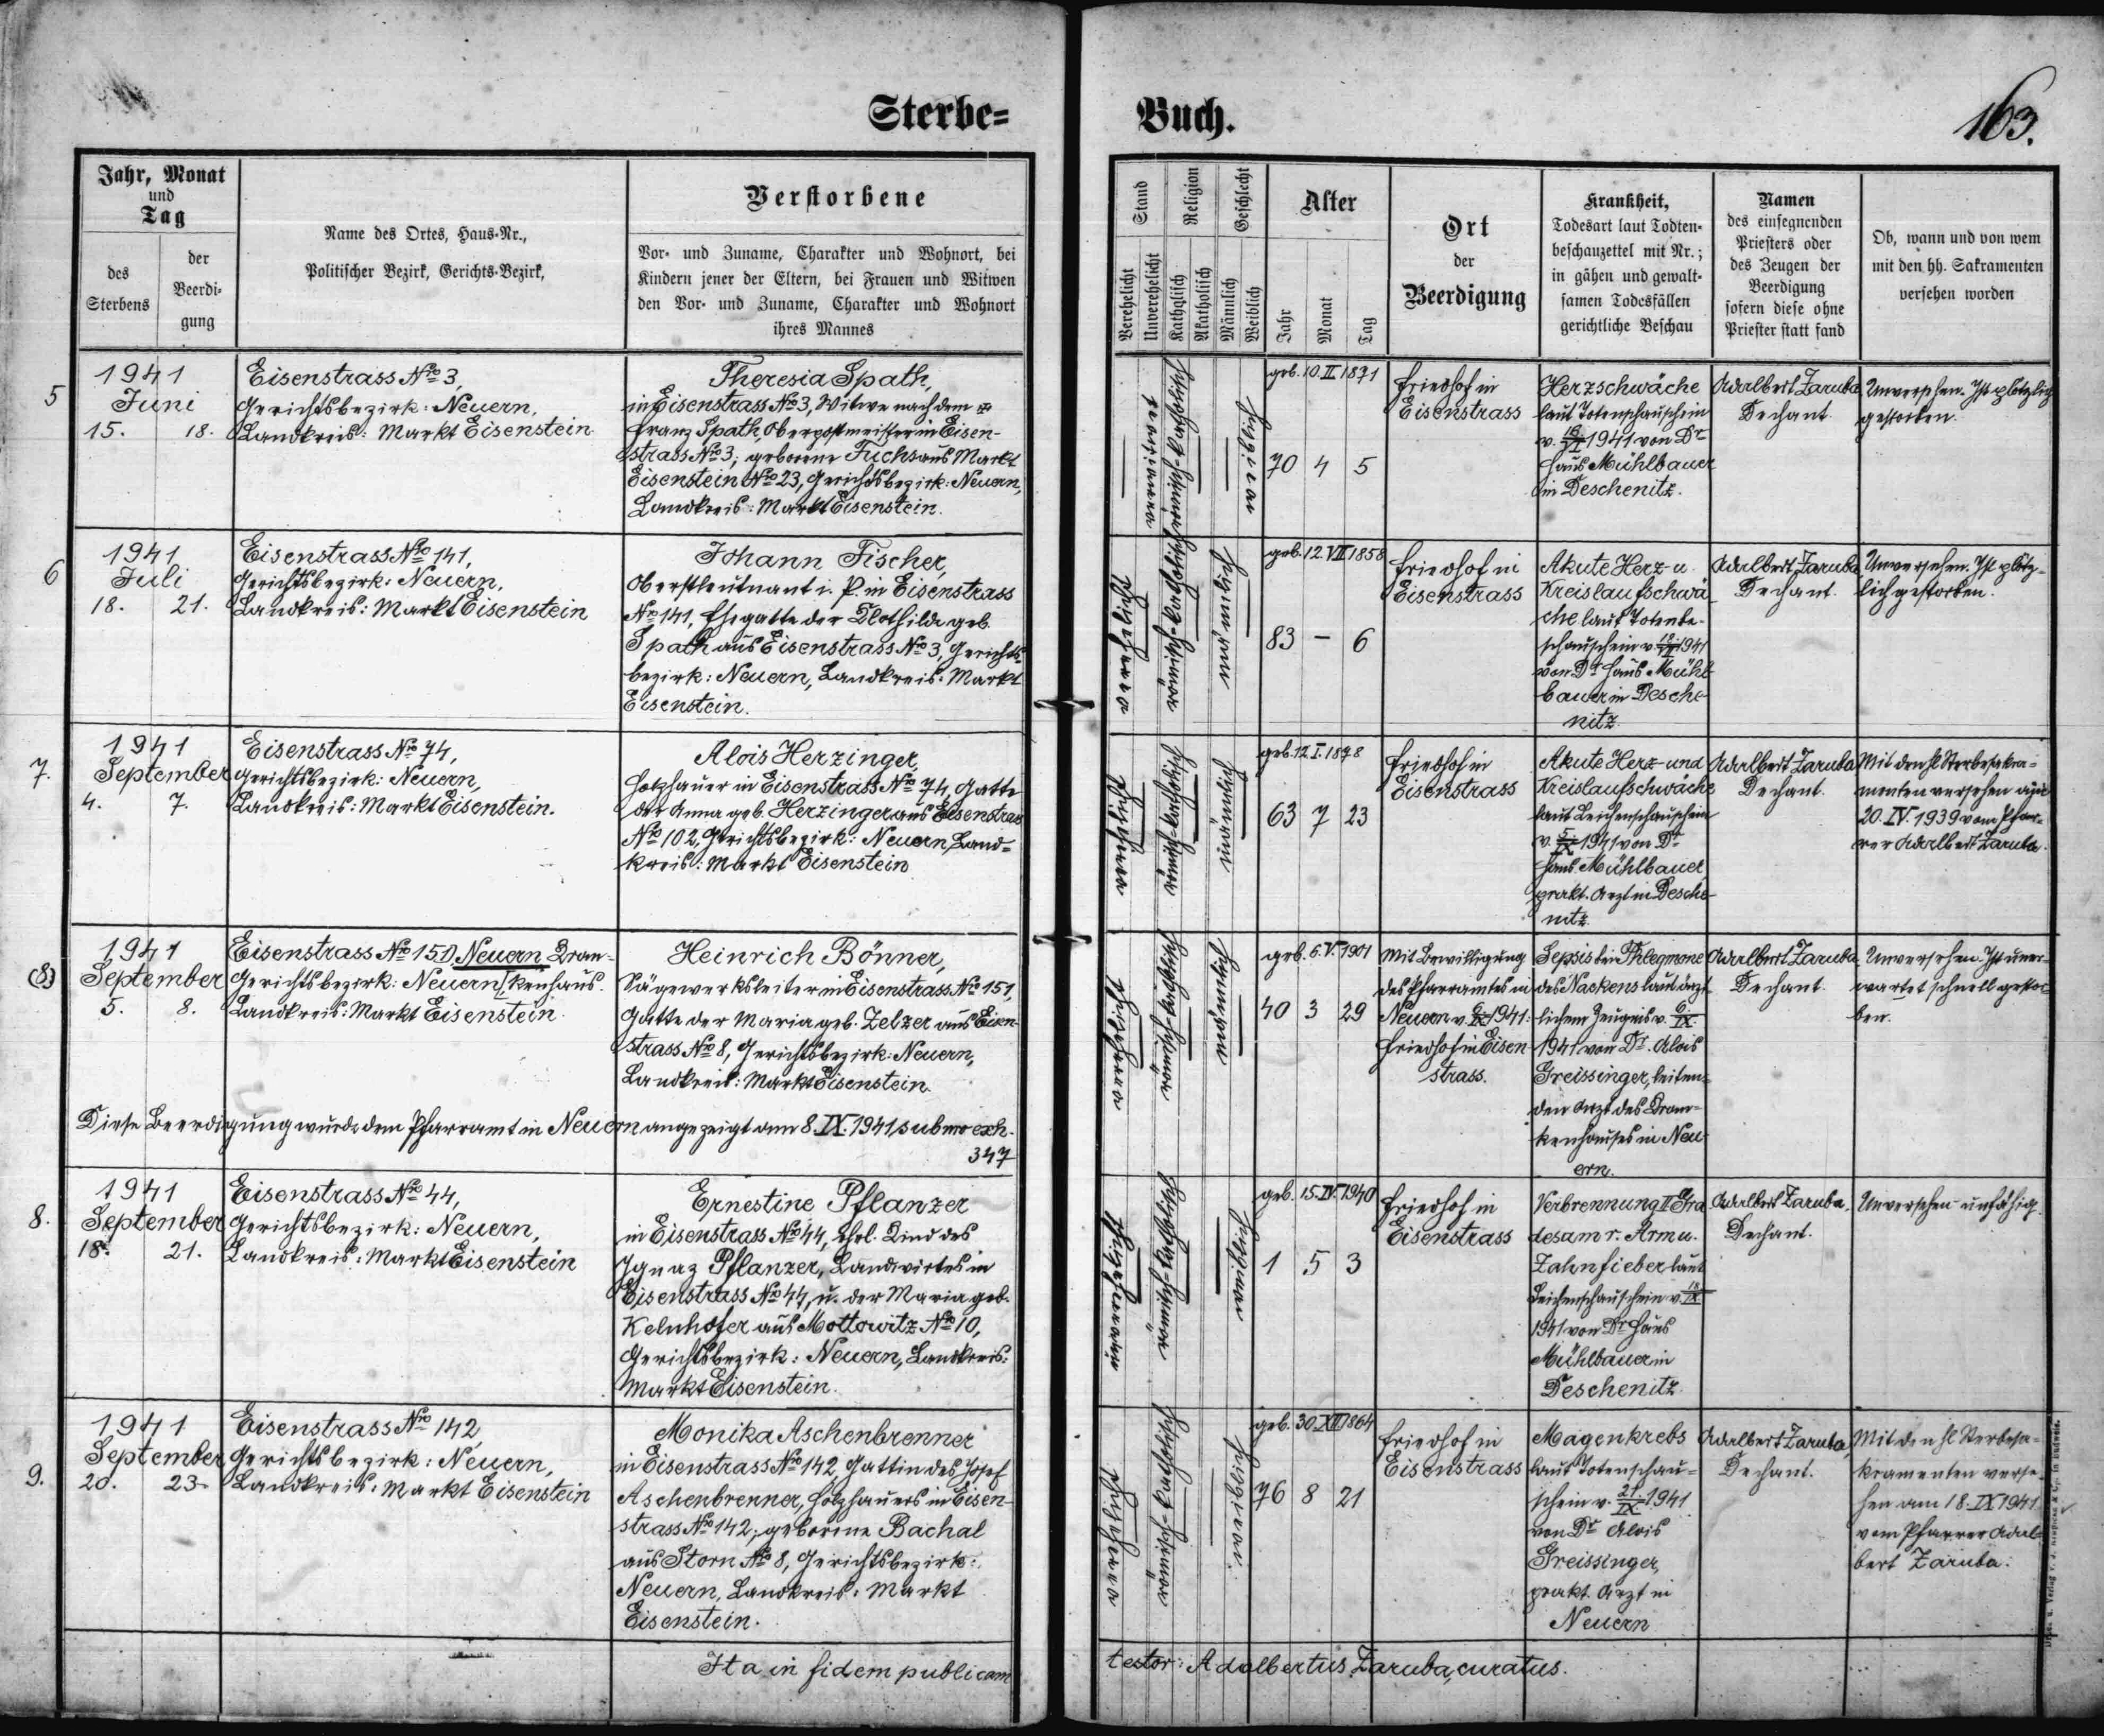 Sterbe=
Buch.
163.
Jahr, Monat
und
Tag
des
Sterbens
der
Beerdi-
gung
Name des Ortes, Haus-Nr.,
Politischer Bezirk, Gerichts-Bezirk,
Verstorbene
Vor- und Zuname, Charakter und Wohnort, bei
Kindern jener der Eltern, bei Frauen und Witwen
den Vor- und Zuname, Charakter und Wohnort
ihres Mannes
Stand
Verehelicht
Unverehelicht
Religion
Katholisch
Akatholisch
Geschlecht
Männlich
Weiblich
Alter
Jahr
Monat
Tag
Ort
der
Beerdigung
Krankheit,
Todesart laut Todten-
beschauzettel mit Nr.;
in gähen und gewalt-
samen Todesfällen
gerichtliche Beschau
Namen
des einsegnenden
Priesters oder
des Zeugen der
Beerdigung
sofern diese ohne
Priester statt fand
Ob, wann und von wem
mit den hh. Sakramenten
versehen worden
5
1941
Juni
15. 18.
Eisenstrass No 3,
Gerichtsbezirk: Neuern,
Landkreis: Markt Eisenstein
Theresia Spath,
in Eisenstrass No 3, Witwe nach dem
Franz Spath, Oberpostmeister in Eisen-
strass No 3; geborene Fuchs aus Markt
Eisenstein No 23, Gerichtsbezirk: Neuern,
Landkreis: Markt Eisenstein.
verwitwet
römisch-katholisch
weiblich
geb. 10.II.1871
70 4 5
Friedhof in
Eisenstrass
Herzschwäche
laut Totenschauschein
v. 16/VI 1941 von Dr
Hans Mühlbauer
in Deschenitz.
Adalbert Zaruba
Dechant.
Unversehen. Ist plötzlich
gestorben.
6
1941
Juli
18. 21.
Eisenstrass No 141,
Gerichtsbezirk: Neuern,
Landkreis: Markt Eisenstein
Johann Fischer,
Oberstleutnant i. P. in Eisenstrass
No 141, Ehegatte der Klothilde geb.
Spath aus Eisenstrass No 3, Gerichts-
bezirk: Neuern, Landkreis: Markt
Eisenstein.
verehelicht
römisch-katholisch
männlich
geb. 12.VII.1858
83 – 6
Friedhof in
Eisenstrass
Akute Herz- u.
Kreislaufschwä
che laut Totenbe-
schauschein v. 1941
von Dr Hans Mühl
bauer in Desche-
nitz.
Adalbert Zaruba
Dechant.
Unversehen. Ist plötz-
lich gestorben.
7.
1941
September
4. 7.
Eisenstrass No 74,
Gerichtsbezirk: Neuern,
Landkreis: Markt Eisenstein.
Alois Herzinger,
Holzhauer in Eisenstrass No 74, Gatte
der Anna geb. Herzinger aus Eisenstrass
No 102, Gerichtsbezirk: Neuern, Land-
kreis: Markt Eisenstein
verehelicht
römisch-katholisch
männlich
geb. 12.I.1878
63 7 23
Friedhof in
Eisenstrass
Akute Herz- und
Kreislaufschwäche
laut Leichenschauschein
v. 5/IX 1941 von Dr
Hans Mühlbauer
prakt. Arzt in Desche-
nitz.
Adalbert Zaruba
Dechant.
Mit den hl Sterbesakra-
menten versehen am
20.IV.1939 vom Pfar-
rer Adalbert Zaruba.
(8)
1941
September
5. 8.
Eisenstrass No 151, Neuern Kran-
Gerichtsbezirk: Neuern, kenhaus.
Landkreis: Markt Eisenstein.
Heinrich Bönner,
Sägewerksleiter in Eisenstrass No 151,
Gatte der Maria geb. Zelzer aus Eisen-
strass No 8, Gerichtsbezirk: Neuern,
Landkreis: Markt Eisenstein.
verehelicht
römisch-katholisch
männlich
geb. 6.V.1901
40 3 29
Mit Bewilligung
des Pfarramtes in
Neuern v. 6/IX 1941:
Friedhof in Eisen-
strass.
Sepsis bei Phlegmone
des Nackens laut ärzt
lichem Zeugnis v. 6/IX.
1941 von Dr. Alois
Greissinger, leiten-
den Arzt des Kran-
kenhauses in Neu-
ern.
Adalbert Zaruba
Dechant.
Unversehen. Ist uner-
wartet schnell gestor-
ben.
Diese Beerdigung wurde dem Pfarramt in Neuern angezeigt am 8.IX.1941 sub nro exh.
347
8.
1941
September
18. 21.
Eisenstrass No 44,
Gerichtsbezirk: Neuern,
Landkreis: Markt Eisenstein
Ernestine Pflanzer
in Eisenstrass No 44, ehel. Kind des
Ignaz Pflanzer, Landwirtes in
Eisenstrass No 44, u. der Maria geb.
Kelnhofer aus Mottowitz No 10,
Gerichtsbezirk: Neuern, Landkreis:
Markt Eisenstein.
unverehelicht
römisch-katholisch
weiblich
geb. 15.IV.1940
1 5 3
Friedhof in
Eisenstrass
Verbrennung II Gra
des am r. Arm u.
Zahnfieber laut
Leichenschauschein v. 18/IX
1941 von Dr Hans
Mühlbauer in
Deschenitz.
Adalbert Zaruba,
Dechant.
Unversehen unfähig.
9.
1941
September
20. 23.
Eisenstrass No 142,
Gerichtsbezirk: Neuern,
Landkreis: Markt Eisenstein
Monika Aschenbrenner
in Eisenstrass No 142, Gattin des Josef
Aschenbrenner, Holzhauers in Eisen-
strass No 142; geborene Bachal
aus Storn No 8, Gerichtsbezirk:
Neuern, Landkreis: Markt
Eisenstein.
verehelicht
römisch-katholisch
weiblich
geb. 30.XII.1864
76 8 21
Friedhof in
Eisenstrass
Magenkrebs
laut Totenschau-
schein v. 21/IX 1941
von Dr Alois
Greissinger,
prakt. Arzt in
Neuern
Adalbert Zaruba,
Dechant.
Mit den hl Sterbesa-
kramenten verse-
hen am 18.IX.1941
vom Pfarrer Adal-
bert Zaruba.
Ita in fidem publicam
testor: Adalbertus Zaruba, curatus.